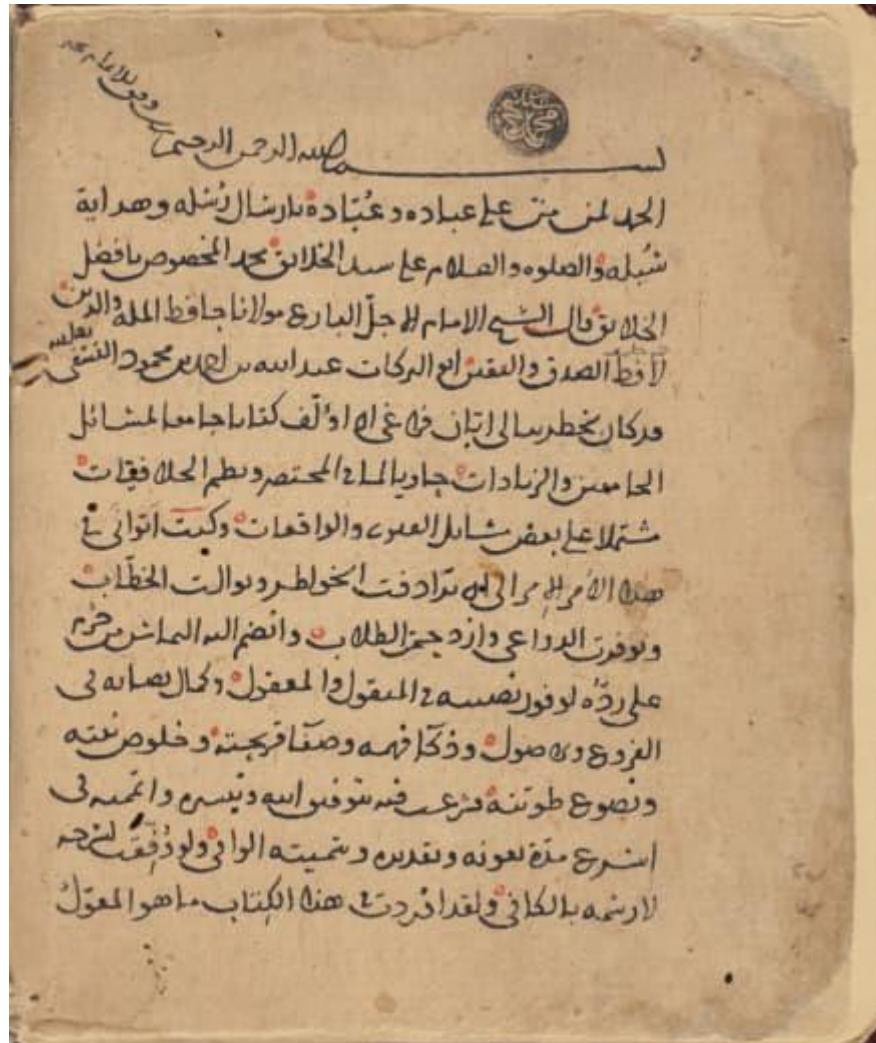 بسم الله الرحمن الرحيم
الحمد لمن من على عباده وعُبّاده بارسال رُسُله وهداية
سُبُله والصلوه والسلام على سيد الخلائق محمد المخصوص بافضل
الخلايق قال الشيخ الامام الاجلّ البارع مولانا حافظ المله والدين
لافظ الصدق واليقين ابو البركات عبد الله بن احمد بن محمود النسفي
قد كان يخطر ببالى ابّان فراغى ان اؤلّف كتابا جامعا لمسائل
الجامعين والزيادات حاويا لما فى المختصر ونظم الخلافيات
مشتملا على بعض مسائل الفتوى والواقعات وكنت اتوانى فى
هذا الأمر الإمر الى ان ترادفت الخواطر وتوالت الخطّاب
وتوفرت الدواعى وازدحمت الطلاب وانضم اليه التماس من
على ردّه لوفور نصيبه فى المنقول والمعقول وكمال نصابه فى
الفروع والاصول وذكا فهمه وصفا قريحته وخلوص نيته
ونصوع طويته فشرعت فيه بتوفيق الله وتيسيره واتممته فى
اسرع مدة بعونه وتقديره وسميته الوافى ولو وُفِّقت لشرحه
لارسمه بالكافى ولقد اوردت فى هذا الكتاب ما هو المعوّل